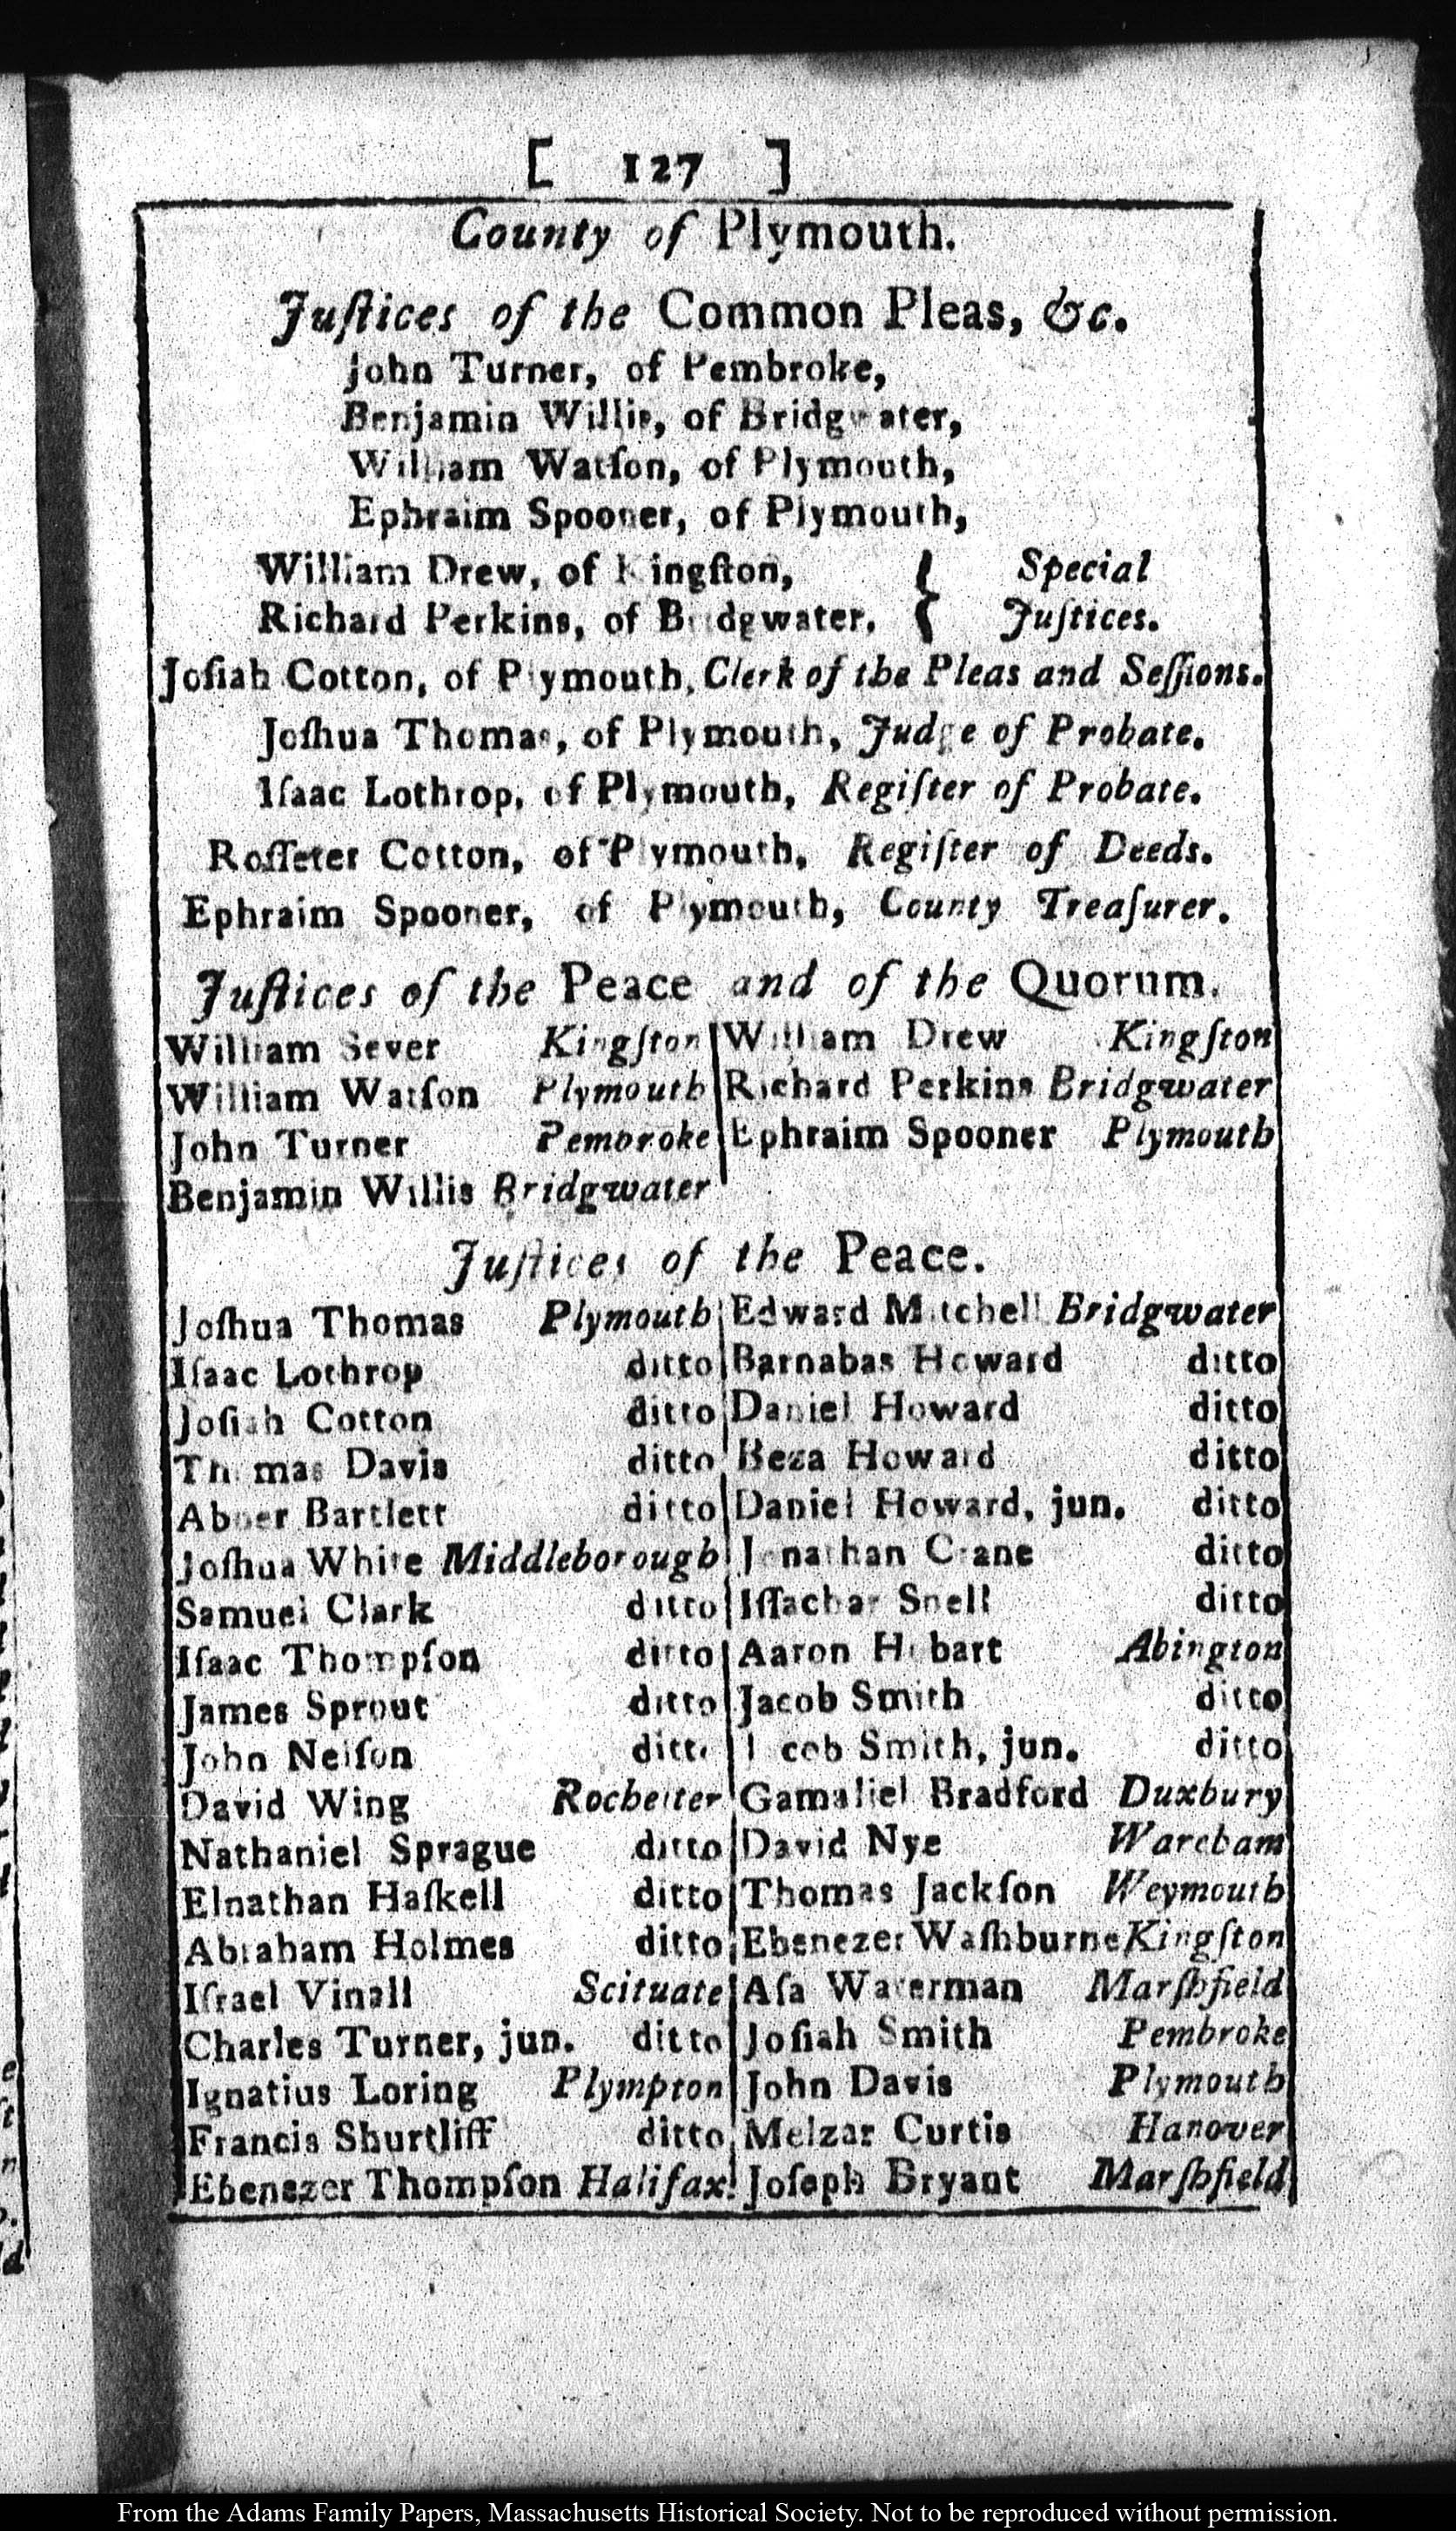 [ 127 ]
County of Plymouth.
Juſtices of the Common Pleas, &c.
John Turner, of Pembroke,
Benjamin Willis, of Bridgwater,
William Watſon, of Plymouth,
Ephraim Spooner, of Plymouth,
William Drew, of Kingſton, } Special
Richard Perkins, of Bridgwater, Juſtices.
Joſiah Cotton, of Plymouth, Clerk of the Pleas and Seſſions.
Joſhua Thomas, of Plymouth, Judge of Probate.
Iſaac Lothrop, of Plymouth, Regiſter of Probate.
Roſſeter Cotton, of Plymouth, Regiſter of Deeds.
Ephraim Spooner, of Plymouth, County Treaſurer.
Juſtices of the Peace and of the Quorum.
William Sever Kingſton
William Watſon Plymouth
John Turner Pembroke
Benjamin Willis Bridgwater
William Drew Kingſton
Richard Perkins Bridgwater
Ephraim Spooner Plymouth
Juſtices of the Peace.
Joſhua Thomas Plymouth
Iſaac Lothrop ditto
Joſiah Cotton ditto
Thomas Davis ditto
Abner Bartlett ditto
Joſhua White Middleborough
Samuel Clark ditto
Iſaac Thompſon ditto
James Sprout ditto
John Nelſon ditto
David Wing Rocheſter
Nathaniel Sprague ditto
Elnathan Haſkell ditto
Abraham Holmes ditto
Iſrael Vinall Scituate
Charles Turner, jun. ditto
Ignatius Loring Plympton
Francis Shurtliff ditto
Ebenezer Thompſon Halifax
Edward Mitchell Bridgwater
Barnabas Howard ditto
Daniel Howard ditto
Beza Howard ditto
Daniel Howard, jun. ditto
Jonathan Crane ditto
Iſſachar Snell ditto
Aaron Hobart Abington
Jacob Smith ditto
Jacob Smith, jun. ditto
Gamaliel Bradford Duxbury
David Nye Wareham
Thomas Jackſon Weymouth
Ebenezer Waſhburne Kingſton
Aſa Waterman Marſhfield
Joſiah Smith Pembroke
John Davis Plymouth
Melzar Curtis Hanover
Joſeph Bryant Marſhfield
From the Adams Family Papers, Massachusetts Historical Society. Not to be reproduced without permission.